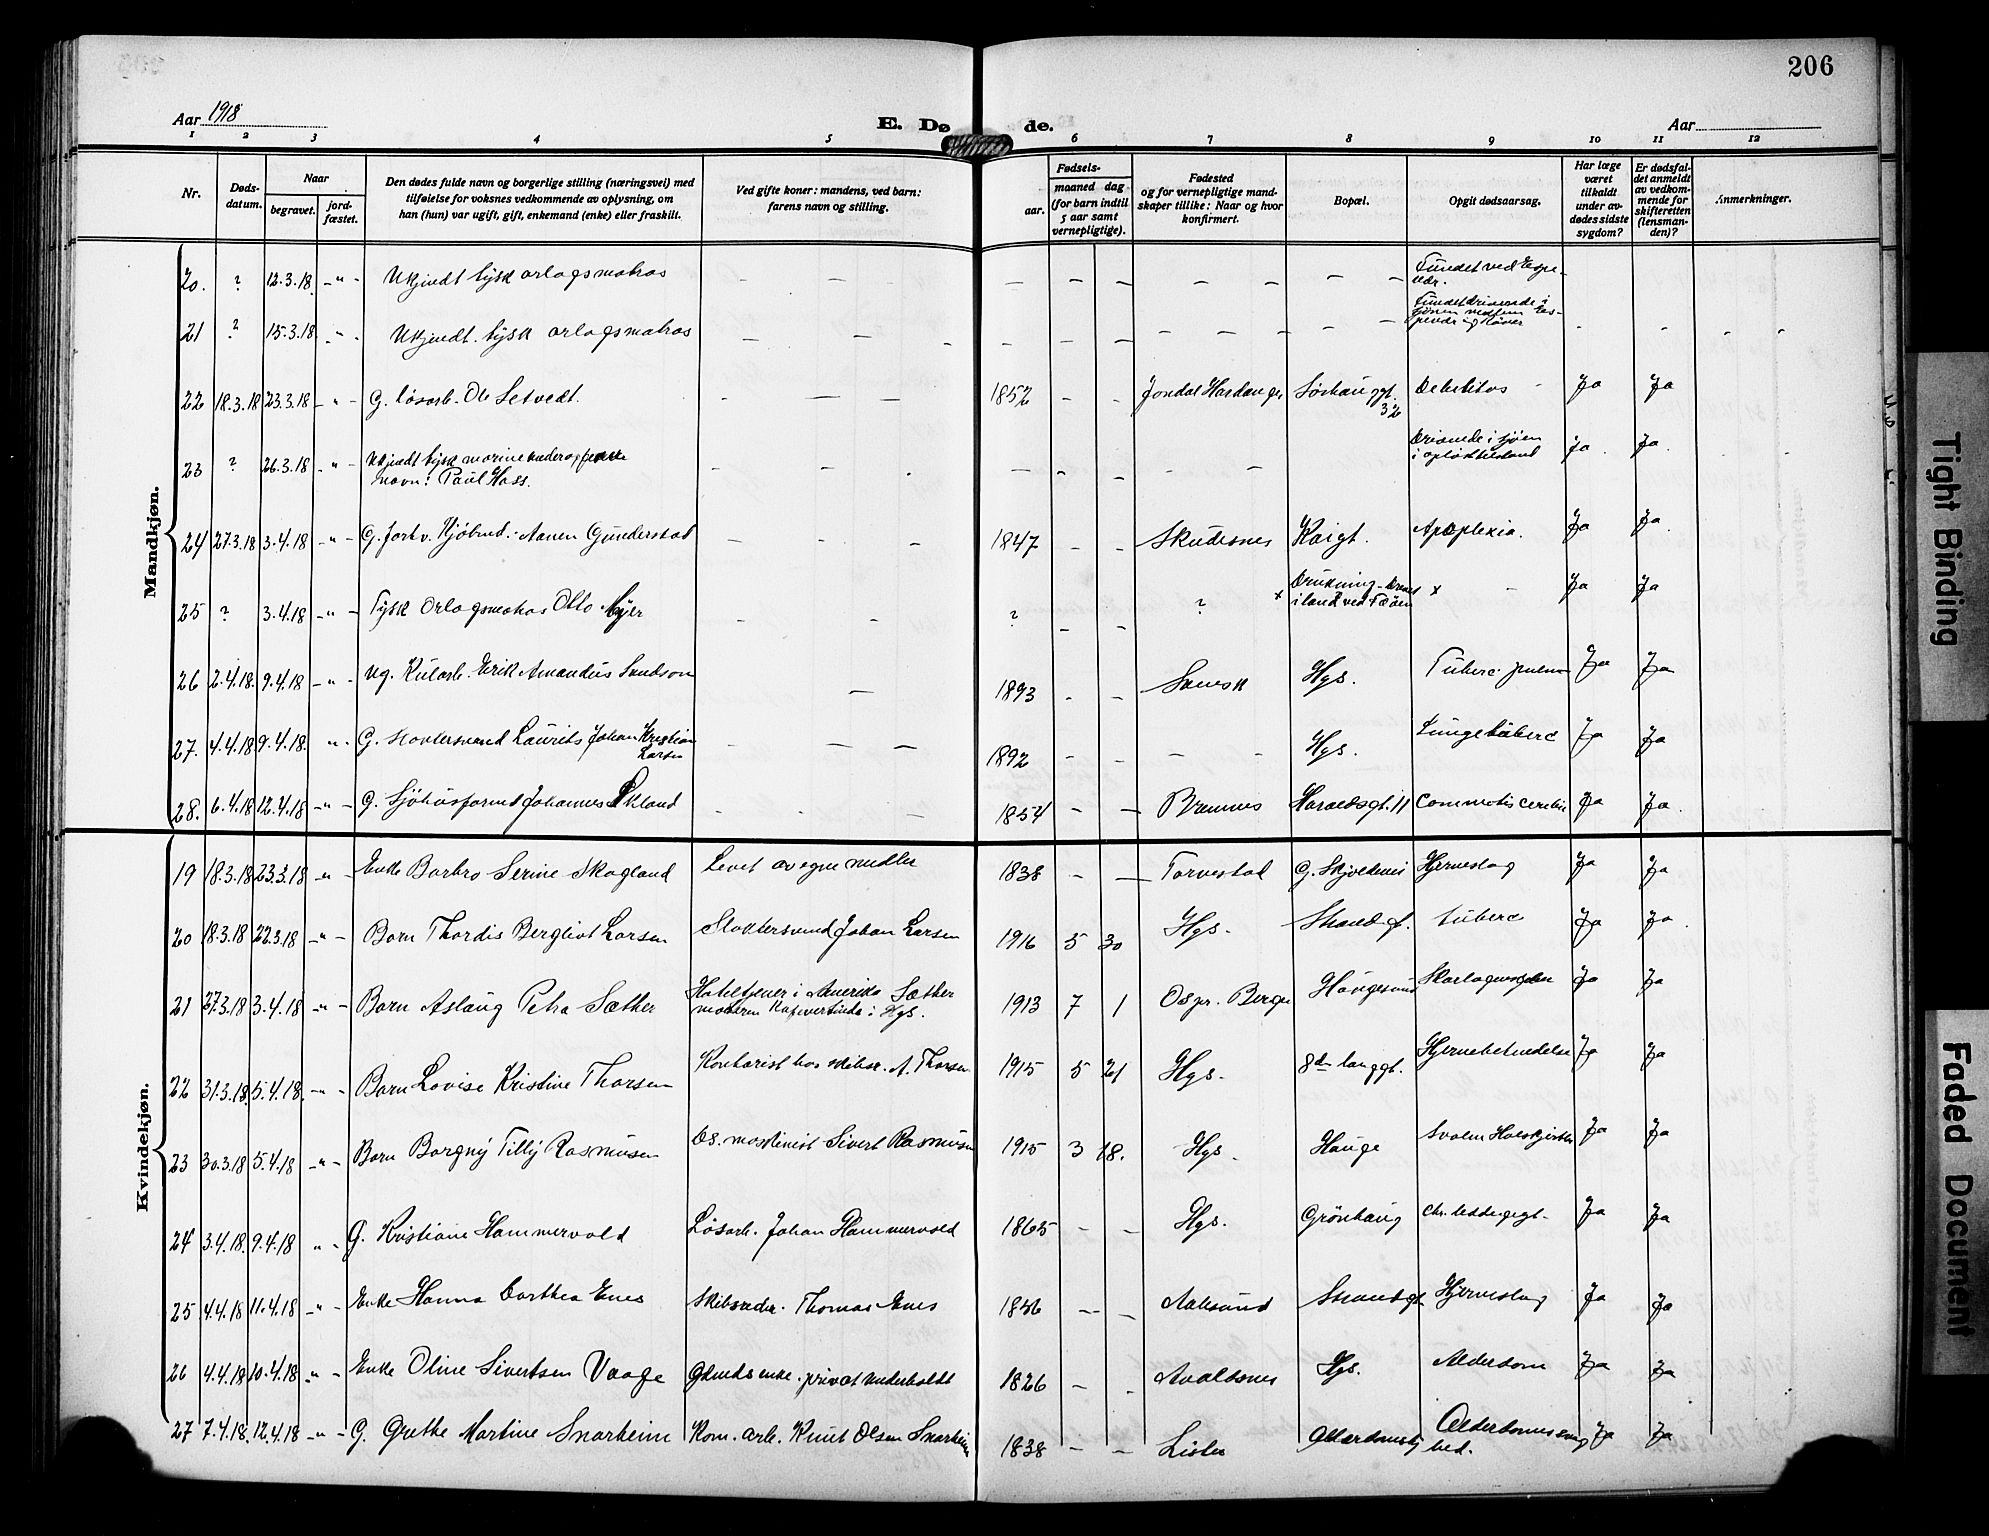 206
Aar 1918
E. Dø de.
Aar
1 2 3 4 5 6 7 8 9 10 11 12
Nr.
Døds-
datum.
Naar
begravet.
jord-
fæstet.
Den dødes fulde navn og borgerlige stilling (næringsvei) med
tilføielse for voksnes vedkommende av oplysning, om
han (hun) var ugift, gift, enkemand (enke) eller fraskilt.
Ved gifte koner: mandens, ved barn:
farens navn og stilling.
Fødsels-
aar.
maaned dag
(for barn indtil
5 aar samt
vernepligtige).
Fødested
og for vernepligtige mand-
skaper tillike: Naar og hvor
konfirmert.
Bopæl.
Opgit dødsaarsag.
Har læge
været
tilkaldt
under av-
dødes sidste
sygdom?
Er dødsfal-
det anmeldt
av vedkom-
mende for
skifteretten
(lensman-
den)?
Anmerkninger.
Mandkjøn.
20. ? 12.3.18 - " - Ukjendt tysk orlogsmatros - - - - - - - - - - Fundet ved Espe-
vær.
21 ? 15.3.18 - " - Ukjendt tysk orlogsmatros - - - - - - - - - - Fundet drivende i
sjøen mellem Es-
pevær og Røvær
22 18.3.18 23.3.18 - " - G. løsarb. Ole Setvedt. - - - 1852 - - Jondal Hardanger Sørhauggt.
32 Debilitas Ja Ja
23 ? 26.3.18 - " - Ukjendt tysk marine
navn: Paul Hass. - - - - - - - - Drivende i sjøen
i opløst tilstand Ja Ja.
24 27.3.18 3.4.18 - " - G. forhv. Kjøbmd. Aanen Gunderstad - - - 1847 - - Skudesnes Kaigt. Apoplexia. Ja Ja
25 ? 3.4.18 - " - Tysk Orlogsmatros Otto - - ? - - ? x Drukning - Drevet
i land ved Feøen x - Ja Ja
26 2.4.18. 9.4.18 - " - ug. Kularb. Erik Amandus Sundson - 1893 - - Svensk Hgs. Tuberc. pulm Ja Ja
27. 4.4.18 9.4.18. " - G. Slogtersvend Laurits Johan Kristian
Larsen - - - 1892 - - - - Hgs. Lungetuberc Ja Ja
28. 6.4.18 12.4.18 - " - G. Sjøhusformd Johannes Økland - - - 1854 - - Bremnes Haraldsgt. 11 Commotis cerebri Ja Ja.
Kvindekjøn.
19 18.3.18 23.3.18 - " - Enke Barbro Serine Skogland Levet av egne midler 1838 - - Torvestad G. Skjoldevei Hjerneslag Ja Ja
20 18.3.18 22.3.18 - " - Barn Thordis Bergliot Larsen Slogtersvend Johan Larsen 1916 5 30 Hgs. Strandgt. tuberc Ja Ja
21 27.3.18 3.4.18 - " - Barn Aslaug Petra Sæther Hoteltjener i Amerika Sæther
moderen Kafevertinde i Hgs. 1913 7 1 Ospr. Bergen Haugesund Skarlagensfeber Ja Ja
22 31.3.18. 5.4.18. - " - Barn Lovise Kristine Thorsen Kontorist hos skibsr. A. Thorsen 1915 5 21 Hgs. 8de langgt. Hjernebetændelse Ja Ja
23 30.3.18 5.4.18 - " - Barn Borgny Tilly Rasmusen Ds. maskinist Sivert Rasmusen 1915 3 18. Hgs. Hauge Svolne Halskjertler Ja Ja
24 3.4.18. 9.4.18 " - G. Kristiane Hammervold Løsarb. Johan Hammervold 1865 - - Hgs. Grønhaug chr. leddegigt. Ja Ja
25 4.4.18 11.4.18 - " - Enke Hanna Dorthea Enes Skibsreder. Thomas Enes 1856 - - Aalesund Strandgt. Hjerneslag Ja Ja
26 4.4.18 10.4.18 - " - Enke Oline Sivertsen Vaage Gdmds enke. privat underholdt 1826 - - Avaldsnes Hgs. Alderdom Ja Ja
27 7.4.18. 12.4.18 - " - G. Grethe Martine Snarheim Kom. arb. Knut Olsen Snarheim 1838 - - Lister Alderdomshj Alderdomssvag
hed. Ja Ja
Tight Binding
Faded Document